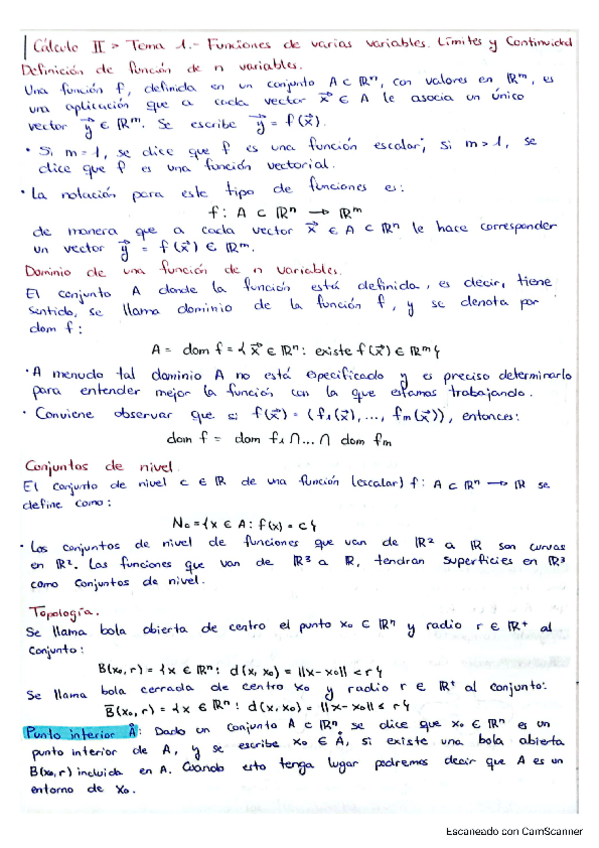 Cálculo II > Tema 1.- Funciones de varias variables. Límites y Continuidad
Definición de función de n variables.
Una función f, definida en un conjunto A ⊂ ℝⁿ, con valores en ℝᵐ, es
una aplicación que a cada vector x⃗ ∈ A le asocia un único
vector y⃗ ∈ ℝᵐ. Se escribe y⃗ = f(x⃗).
· Si m = 1, se dice que f es una función escalar; si m > 1, se
dice que f es una función vectorial.
· La notación para este tipo de funciones es:
f: A ⊂ ℝⁿ → ℝᵐ
de manera que a cada vector x⃗ ∈ A ⊂ ℝⁿ le hace corresponder
un vector y⃗ = f(x⃗) ∈ ℝᵐ.
Dominio de una función de n variables.
El conjunto A donde la función está definida, es decir, tiene
sentido, se llama dominio de la función f, y se denota por
dom f:
A = dom f = { x⃗ ∈ ℝⁿ: existe f(x⃗) ∈ ℝᵐ }
· A menudo tal dominio A no está especificado y es preciso determinarlo
para entender mejor la función con la que estamos trabajando.
· Conviene observar que si f(x⃗) = (f₁(x⃗), ..., fm(x⃗)), entonces:
dom f = dom f₁ ∩ ... ∩ dom fm
Conjuntos de nivel.
El conjunto de nivel c ∈ ℝ de una función (escalar) f: A ⊂ ℝⁿ → ℝ se
define como:
N₀ = { x ∈ A: f(x) = c }
· Los conjuntos de nivel de funciones que van de ℝ² a ℝ son curvas
en ℝ². Las funciones que van de ℝ³ a ℝ, tendran superficies en ℝ³
como conjuntos de nivel.
Topología.
Se llama bola abierta de centro el punto x₀ ⊂ ℝⁿ y radio r ∈ ℝ⁺ al
conjunto:
B(x₀, r) = { x ∈ ℝⁿ: d(x, x₀) = ||x - x₀|| < r }
Se llama bola cerrada de centro x₀ y radio r ∈ ℝ⁺ al conjunto:
B̅(x₀, r) = { x ∈ ℝⁿ: d(x, x₀) = ||x - x₀|| ≤ r }
Punto interior Å: Dado un conjunto A ⊂ ℝⁿ se dice que x₀ ∈ ℝⁿ es un
punto interior de A, y se escribe x₀ ∈ Å, si existe una bola abierta
B(x₀, r) incluida en A. Cuando esto tenga lugar podremos decir que A es un
entorno de x₀.
Escaneado con CamScanner